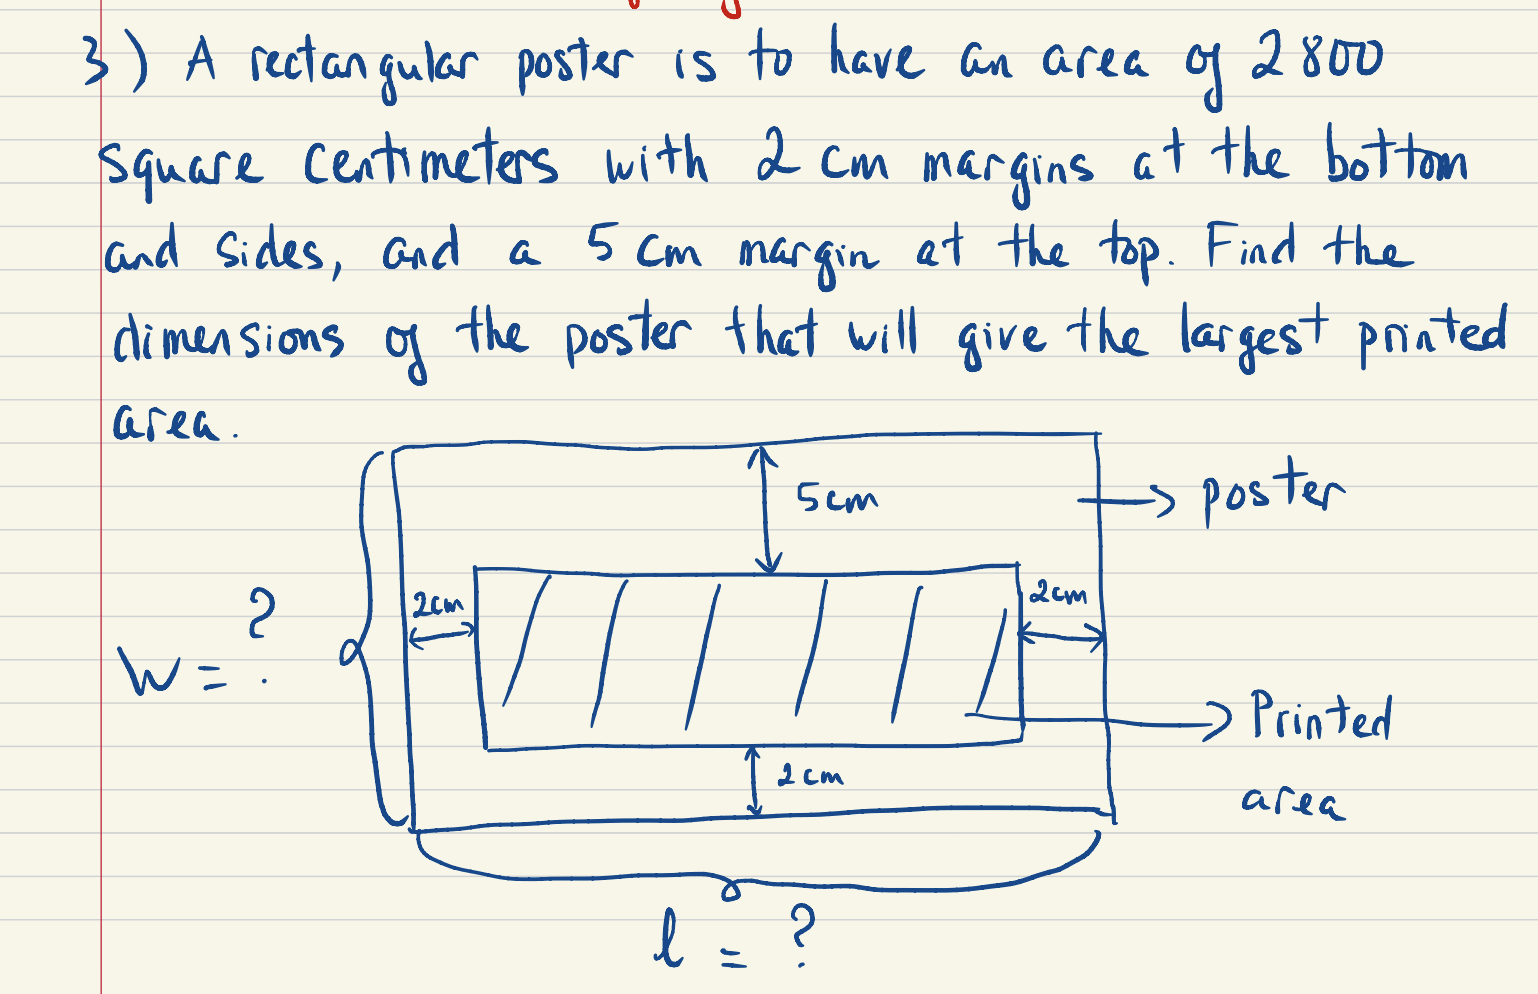 3) A rectangular poster is to have an area of 2800
square centimeters with 2 cm margins at the bottom
and sides, and a 5 cm margin at the top. Find the
dimensions of the poster that will give the largest printed
area.
5cm
poster
2cm
2cm
w = ?
Printed
area
2cm
l = ?